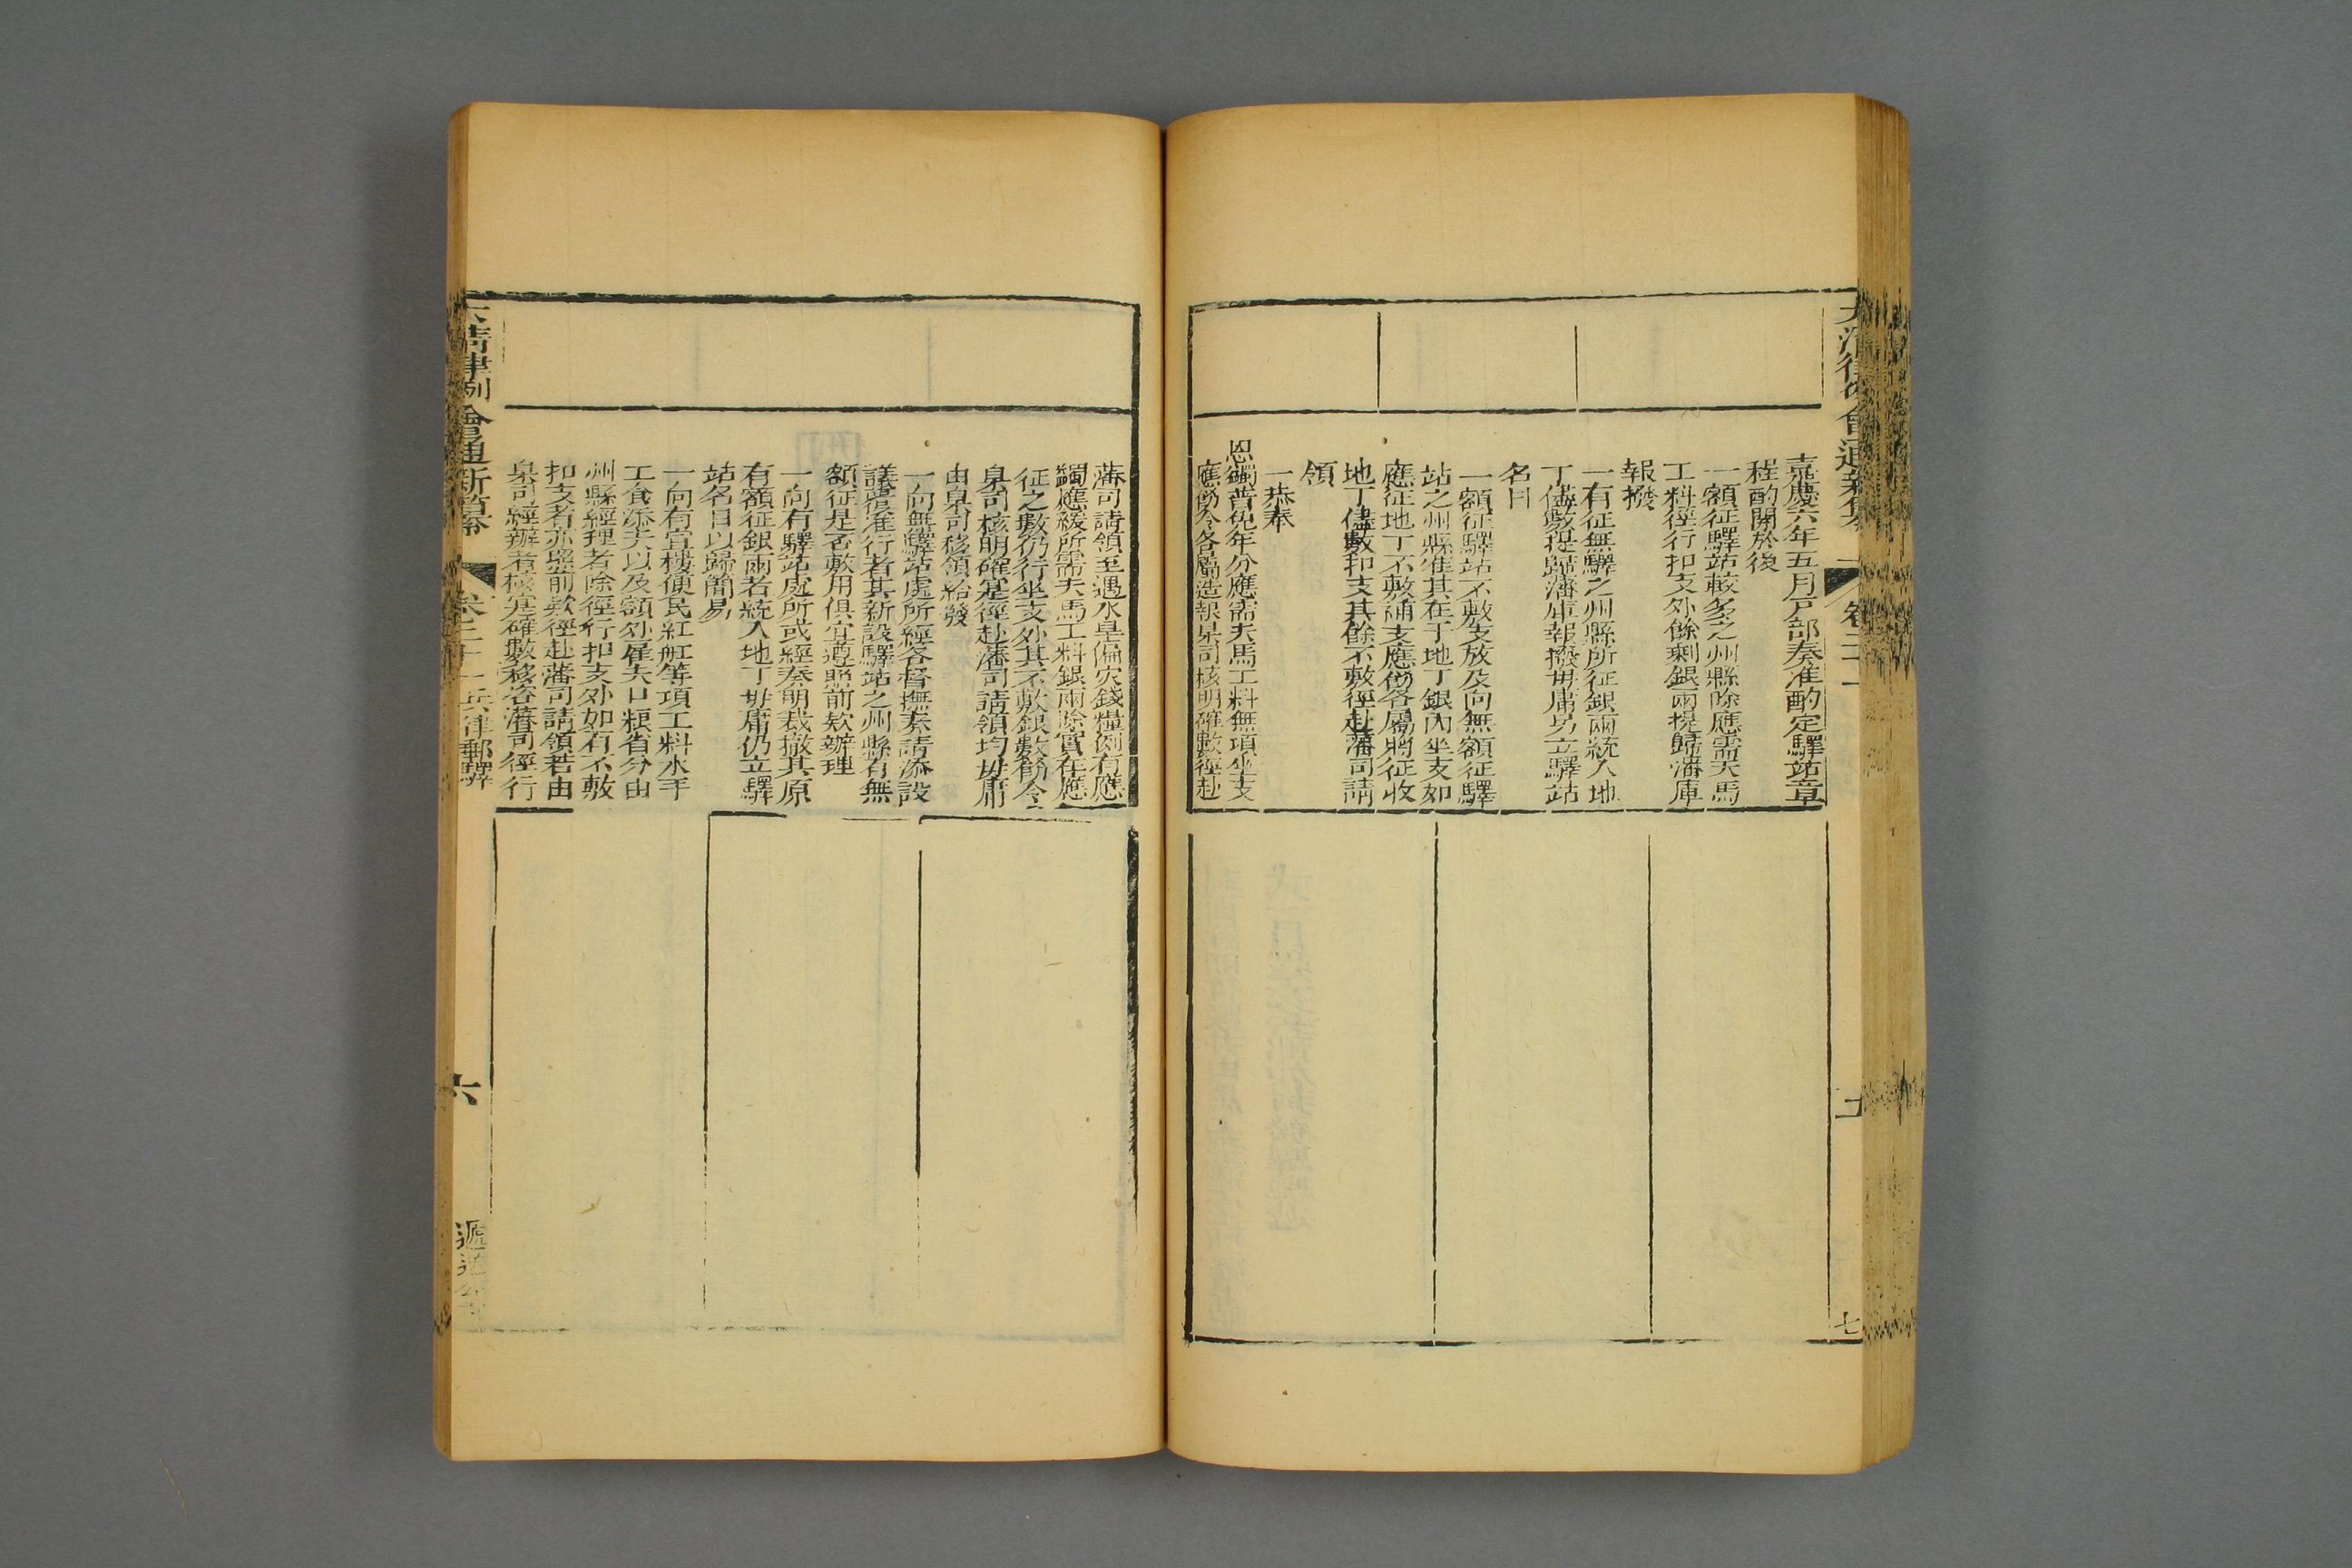 大清律例會通新纂
卷二十一
七
嘉慶六年五月戸部奏准酌定驛站章
程酌開於後
一額征驛站較多之州縣除應需夫馬
工料徑行扣支外餘剩銀兩提歸藩庫
報撥
一有征無驛之州縣所征銀兩統入地
丁儘數提歸藩庫報撥毋庸另立驛站
名目
一額征驛站不敷支放及向無額征驛
站之州縣准其在于地丁銀內坐支如
應征地丁不敷補支應飭各屬將征收
地丁儘數扣支其餘不敷徑赴藩司請
領
一恭奉
恩蠲普免年分應需夫馬工料無項坐支
應飭令各屬造報臬司核明確數徑赴
藩司請領至遇水旱偏灾錢糧例有應
蠲應緩所需夫馬工料銀兩除實在應
征之數仍行坐支外其不敷銀數飭令
臬司核明確定徑赴藩司請領均毋庸
由臬司移領給發
一向無驛站處所經各督撫奏請添設
議覆准行者其新設驛站之州縣有無
額征是否敷用俱宜遵照前欵辦理
一向有驛站處所或經奏明裁撤其原
有額征銀兩者統入地丁毋庸仍立驛
站名目以歸簡易
一向有宣樓便民紅舡等項工料水手
工食添夫以及額外雇夫口糧省分由
州縣經理者除徑行扣支外如有不敷
扣支者亦照前欵徑赴藩司請領若由
臬司經辦者核定確數移咨藩司徑行
大清律例會通新纂
卷二十一兵律郵驛
六
遞送公文